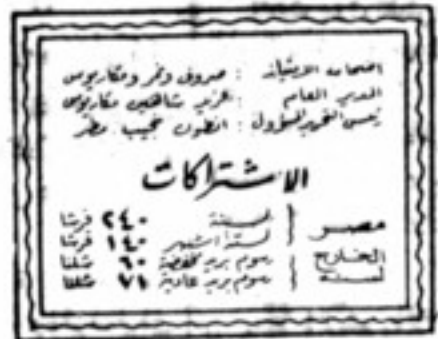 اصحاب الامتياز : صروف ونمر ومكاريوس
المدير العام : عزيز شاهين مكاريوس
رئيس التحرير المسؤول : انطون نجيب مطر
الاشتراكات
مصر
لسنة ٢٤٠ قرشا
لستة اشهر ١٤٠ قرشا
الخارج لسنة
رسوم بريد مخفضة ٦٠ شلنا
رسوم بريد عادية ٧٦ شلنا